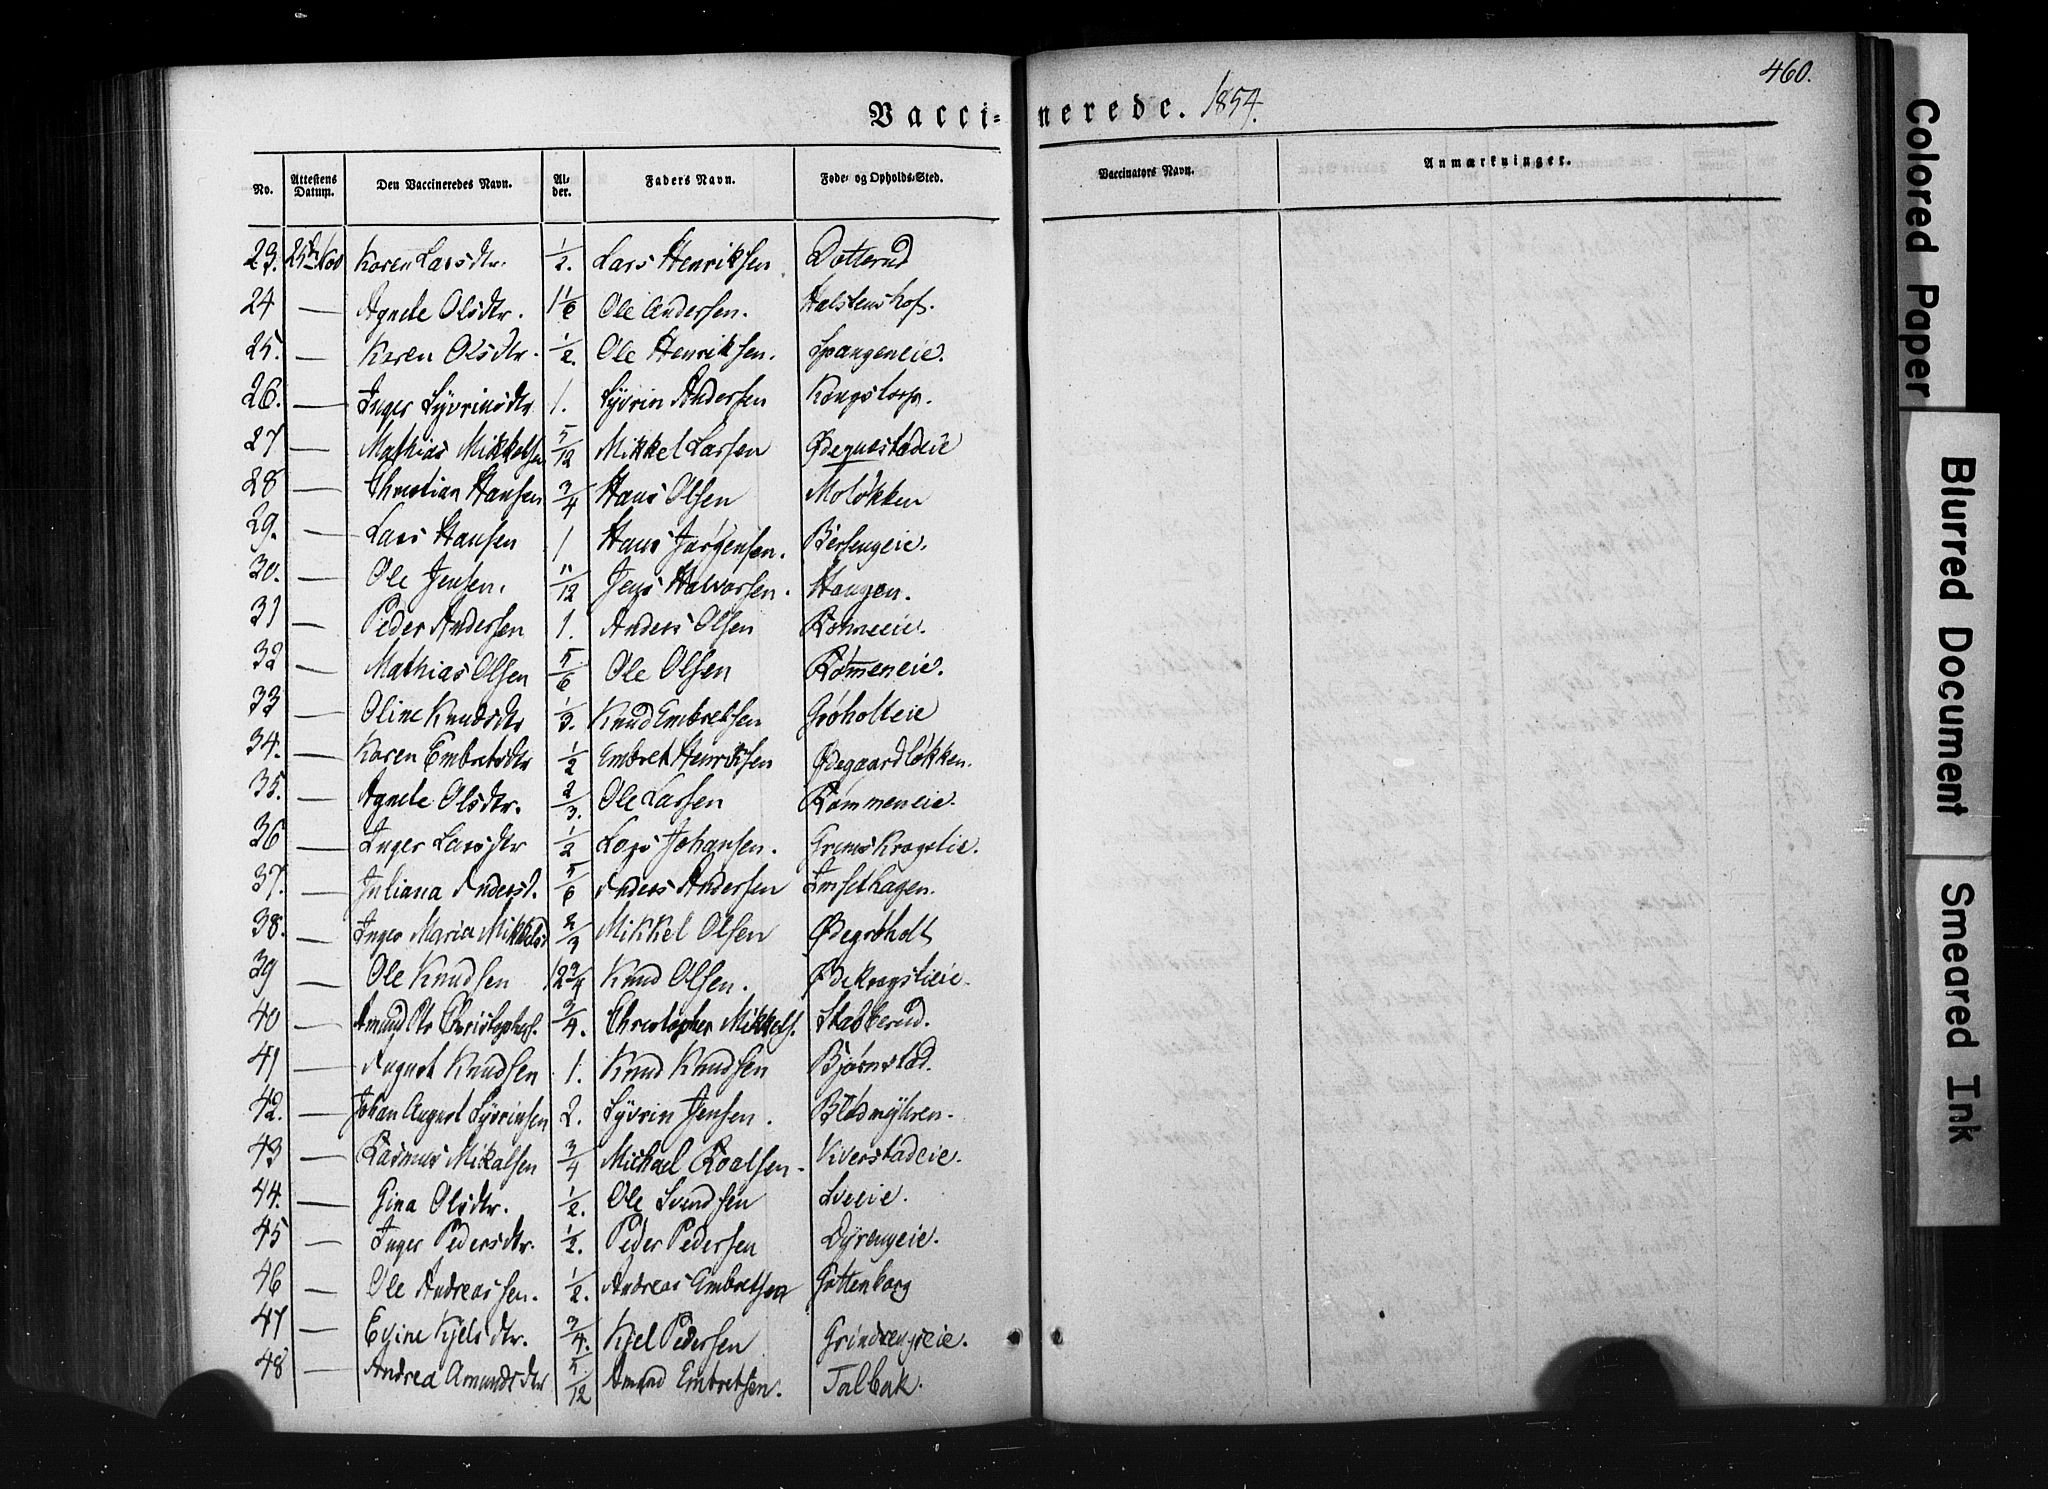 460.
Vacci= nerede. 1854.
No. Attestens Datum. Den Vaccineredes Navn. Al- der. Faders Navn. Føde- og Opholds-Sted. Vaccinators Navn. Anmærkninger.
23. Karen Larsdtr. 1/2. Lars Henriksen Dotterud
24 — Agnete Olsdtr. 1 1/6 Ole Andersen. Halstenshof.
25. — Karen Olsdtr. 1/2. Ole Henriksen. Spangeneie.
26. — Inger Syvrinsdtr 1. Syvrin Andersen Kongstorp.
27 — Mathias Mikkelsen 5/12 Mikkel Larsen
28 — Christian Hansen 3/4 Hans Olsen Moløkken
29. — Lars Hansen 1 Hans Jørgensen. Berfengeie.
30. — Ole Jensen. 11/12 Jens Halvorsen. Haugen.
31 — Peder Andersen 1. Anders Olsen
32 — Mathias Olsen 5/6 Ole Olsen Rommeneie.
33 — Oline Knudsdtr 1/3. Knud Embretsen Grøholteie
34. — Karen Embretsdtr 1/2 Embret Henriksen Ødegaardløkken.
35. — Agnete Olsdtr. 2/3. Ole Larsen Rommeneie.
36 — Inger Larsdtr 1/2 Lars Johansen.
37. — Juliana Andersd. 5/6 Anders Andersen Imsethagen.
38. — Inger Maria Mikkelsd 2/3 Mikkel Olsen Ødegrøholt
39 — Ole Knudsen 12 3/4 Knud Olsen.
40 — Amund Christophers. 3/4. Christopher Mikkels. Stabberud.
41 — August Knudsen 1. Knud Knudsen Bjørnstad.
42. — Johan August Syvrinsen 2. Syvrin Jensen. Blødmyhren.
43 — Rasmus Mikalsen 3/4 Michael Roalsen. Viverstadeie.
44. — Gina Olsdtr. 1/2. Ole Svendsen Sveeie.
45 — Inger Pedersdtr. 1/2. Peder Pedersen Dyrengeie.
46 — Ole Andreassen. 1/2. Andreas Embretsen Gottenborg
47 — Eline Kjelsdtr. 3/4. Kjel Pedersen
48 — Andrea Amundsdtr 5/12 Amund Embretsen. Talbak.
Colored Paper
Blurred Document
Smeared Ink